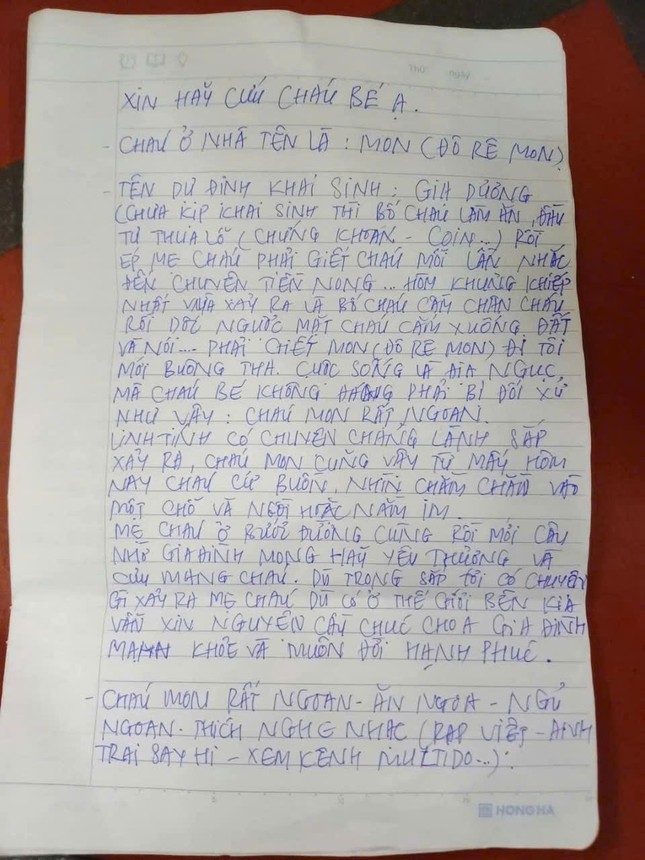 XIN HÃY CỨU CHÁU BÉ Ạ.
- CHÁU Ở NHÀ TÊN LÀ : MON (ĐÔ RÊ MON)
- TÊN DỰ ĐỊNH KHAI SINH : GIA DƯƠNG
(CHƯA KỊP KHAI SINH THÌ BỐ CHÁU LÀM ĂN, ĐẦU
TƯ THUA LỖ (CHỨNG KHOÁN - COIN...) RỒI
ÉP MẸ CHÁU PHẢI GIẾT CHÁU MỖI LẦN NHẮC
ĐẾN CHUYỆN TIỀN NONG... HÔM KHỦNG KHIẾP
NHẤT VỪA XẢY RA LÀ BỐ CHÁU CẦM CHÂN CHÁU
RỒI DỐC NGƯỢC MẶT CHÁU CẮM XUỐNG ĐẤT
VÀ NÓI.... PHẢI CHẾT MON (ĐÔ RÊ MON) ĐI TÔI
MỚI BUÔNG THA. CUỘC SỐNG LÀ ĐỊA NGỤC
MÀ CHÁU BÉ KHÔNG ĐÁNG PHẢI BỊ ĐỐI XỬ
NHƯ VẬY : CHÁU MON RẤT NGOAN.
LINH TÍNH CÓ CHUYỆN CHẲNG LÀNH SẮP
XẢY RA, CHÁU MON CŨNG VẬY TỪ MẤY HÔM
NAY CHÁU CỨ BUỒN, NHÌN CHẰM CHẰM VÀO
MỘT CHỖ VÀ NGỒI HOẶC NẰM IM.
MẸ CHÁU Ở BƯỚC ĐƯỜNG CÙNG RỒI MỚI CẦU
NHỜ GIA ĐÌNH MONG HÃY YÊU THƯƠNG VÀ
CƯU MANG CHÁU. DÙ TRONG SẮP TỚI CÓ CHUYỆN
GÌ XẢY RA MẸ CHÁU DÙ CÓ Ở THẾ GIỚI BÊN KIA
VẪN XIN NGUYỆN CẦU CHÚC CHO A GIA ĐÌNH
MẠNH KHỎE VÀ MUÔN ĐỜI HẠNH PHÚC.
- CHÁU MON RẤT NGOAN - ĂN NGOA - NGỦ
NGOAN. THÍCH NGHE NHẠC (RAP VIỆT - ANH
TRAI SAY HI - XEM KÊNH MULTIDO...).
HONG HA